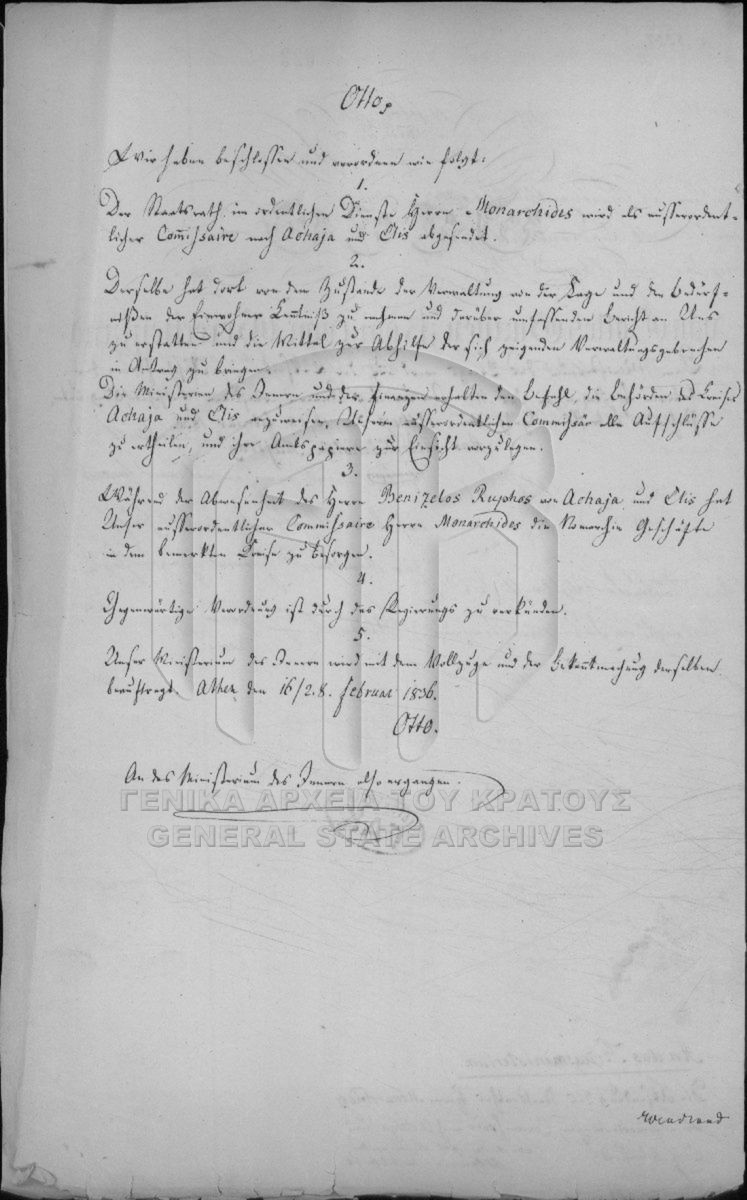 Otto,
Wir haben beschlossen und verordnen wie folgt:
1.
Der Staatsrath im ordentlichen Dienste Herrn Monarchides wird als ausserordent-
licher Commissaire nach Achaja und Elis abgesendet.
2.
Derselbe hat dort von dem Zustande der Verwaltung von der Lage und den Bedürf-
nissen der Einwohner Kenntniß zu nehmen und darüber umfassenden Bericht an Uns
zu erstatten und die Mittel zur Abhilfe der sich zeigenden Verwaltungsgebrechen
in Antrag zu bringen.
Die Ministerien des Innern und der Finanzen erhalten den Befehl, die Behörden des Kreises
Achaja und Elis anzuweisen, Unserm ausserordentlichen Commissär alle Aufschlüsse
zu ertheilen, und ihre Amtspapiere zur Einsicht vorzulegen.
3.
Während der Abwesenheit des Herrn Benizelos Ruphos von Achaja und Elis hat
Unser ausserordentlicher Commissaire Herrn Monarchides die Nomarchie Geschäfte
in dem bemerkten Kreise zu besorgen.
4.
Gegenwärtige Verordnung ist durch das Regierungs zu verkünden.
5.
Unser Ministerium des Innern wird mit dem Vollzuge und der Bekanntmachung derselben
beauftragt. Athen den 16/28. Februar 1836.
Otto.
An das Ministerium des Innern also ergangen.
ΓΕΝΙΚΑ ΑΡΧΕΙΑ ΤΟΥ ΚΡΑΤΟΥΣ
GENERAL STATE ARCHIVES
Wendland